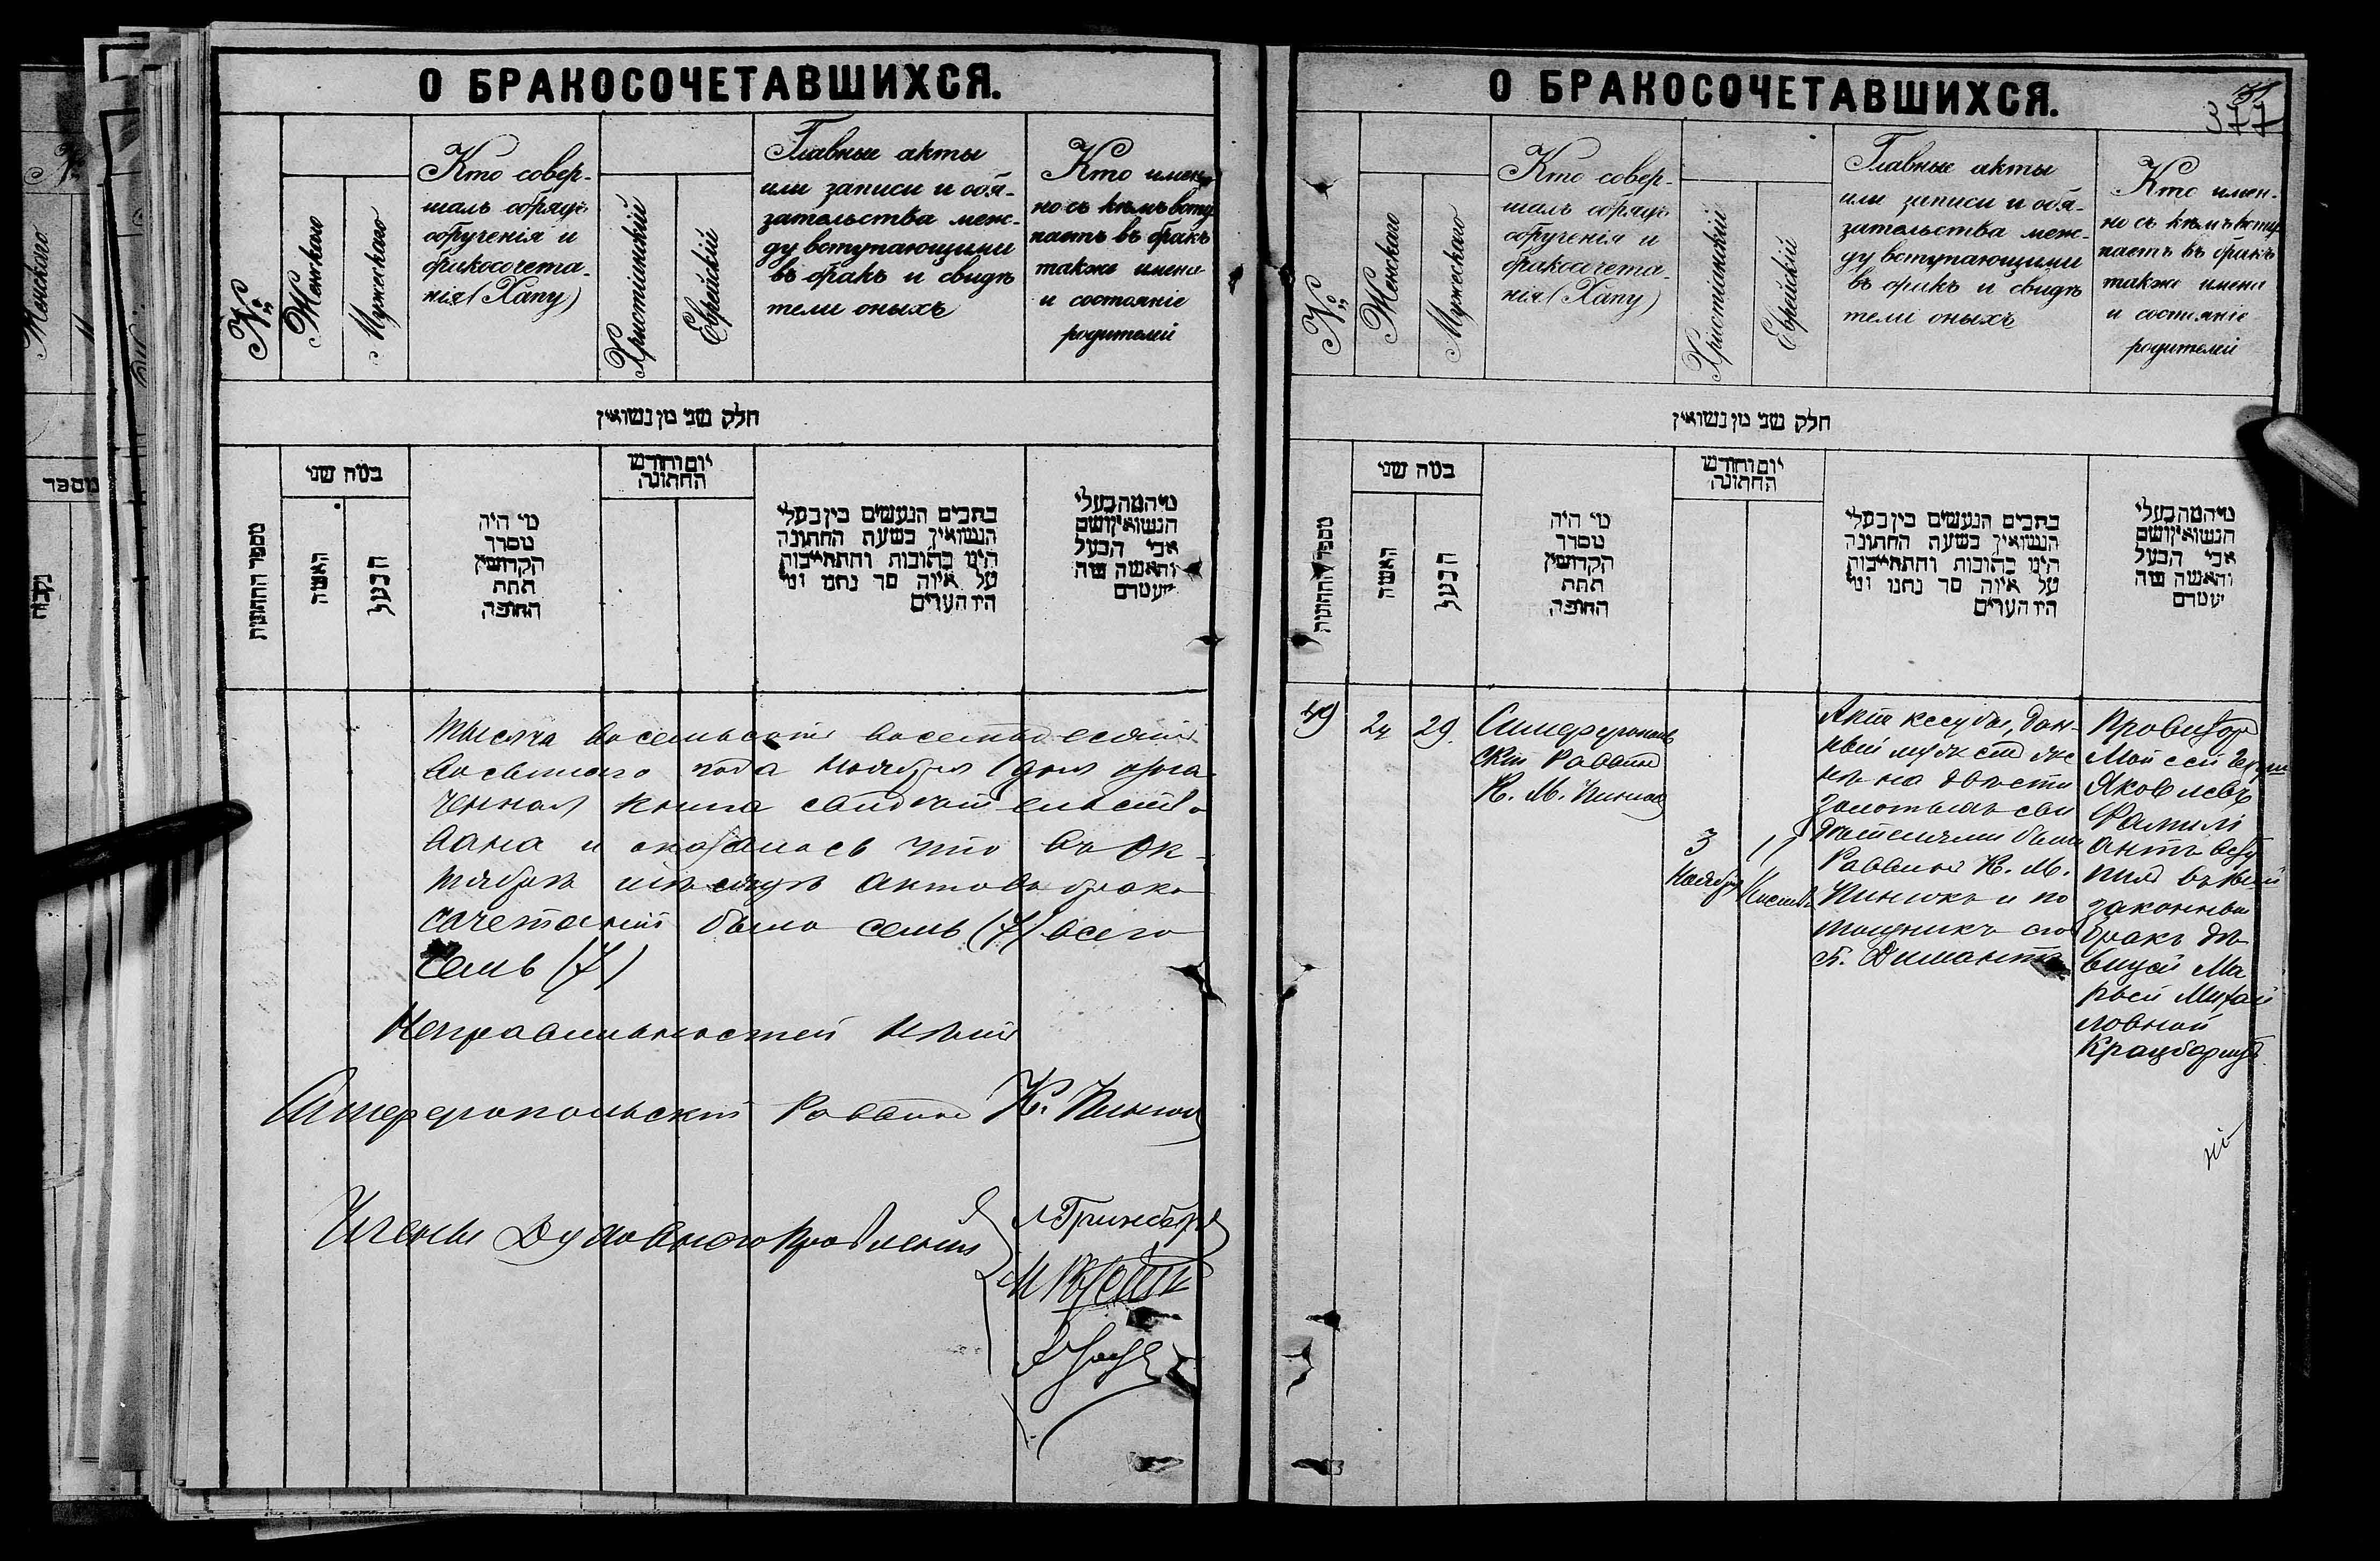 О БРАКОСОЧЕТАВШИХСЯ.
№
Женскаго
Мужескаго
Кто совер-
шалъ обрядъ
обрученія и
бракосочета-
нія (Хапу)
Христіянскій
Еврейскій
Главные акты
или записи и обя-
зательства меж-
ду вступающими
въ бракъ и свидѣ
тели оныхъ
Кто имен-
но съ кѣмъ всту
паетъ въ бракъ
также имена
и состояніе
родителей
חלק שני מן נשואין
מספר החתונות
כמה שני
האשה
הבעל
מי היה
מסדר
הקדושין
תחת
החופה
יום וחודש
החתונה
כתבים הנעשים בין בעלי
הנשואין בשעת החתונה
היינו כתובות והתחייבות
על איזה סך נתנו ומי
היו העדים
מי המה בעלי
הנשואין ושם
אבי הבעל
והאשה שה
Тысяча восемьсотъ восемьдесятъ
восьмого года Ноября дня
книга свидѣтельство
вана и оказалось что въ Ок-
тябрѣ мѣсяцѣ актовъ брако
сочетаній было семь (7) всего
семь (7)
Неправильностей нѣтъ
Симферопольскій Раввинъ
Члены Духовнаго Правленія
О БРАКОСОЧЕТАВШИХСЯ.
377
№
Женскаго
Мужескаго
Кто совер-
шалъ обрядъ
обрученія и
бракосочета-
нія (Хапу)
Христіянскій
Еврейскій
Главные акты
или записи и обя-
зательства меж-
ду вступающими
въ бракъ и свидѣ
тели оныхъ
Кто имен-
но съ кѣмъ всту
паетъ въ бракъ
также имена
и состояніе
родителей
חלק שני מן נשואין
מספר החתונות
כמה שני
האשה
הבעל
מי היה
מסדר
הקדושין
תחת
החופה
יום וחודש
החתונה
כתבים הנעשים בין בעלי
הנשואין בשעת החתונה
היינו כתובות והתחייבות
על איזה סך נתנו ומי
היו העדים
מי המה בעלי
הנשואין ושם
אבי הבעל
והאשה שה
49
24
29.
Симферополь
скій Раввинъ
3
Ноября
11
Кислевъ
Актъ кесубы, дан-
ный мужемъ же
нѣ на двѣсти
золотыхъ сви
дѣтелями были
Раввинъ
и по
мощникъ его
Димантъ
Провизоръ
Мойсей
Яковлевъ
Фамилі
антъ всту
пилъ въ
законный
бракъ дѣ
вицей Ма
рьей Михай
ловной
Крацборщъ